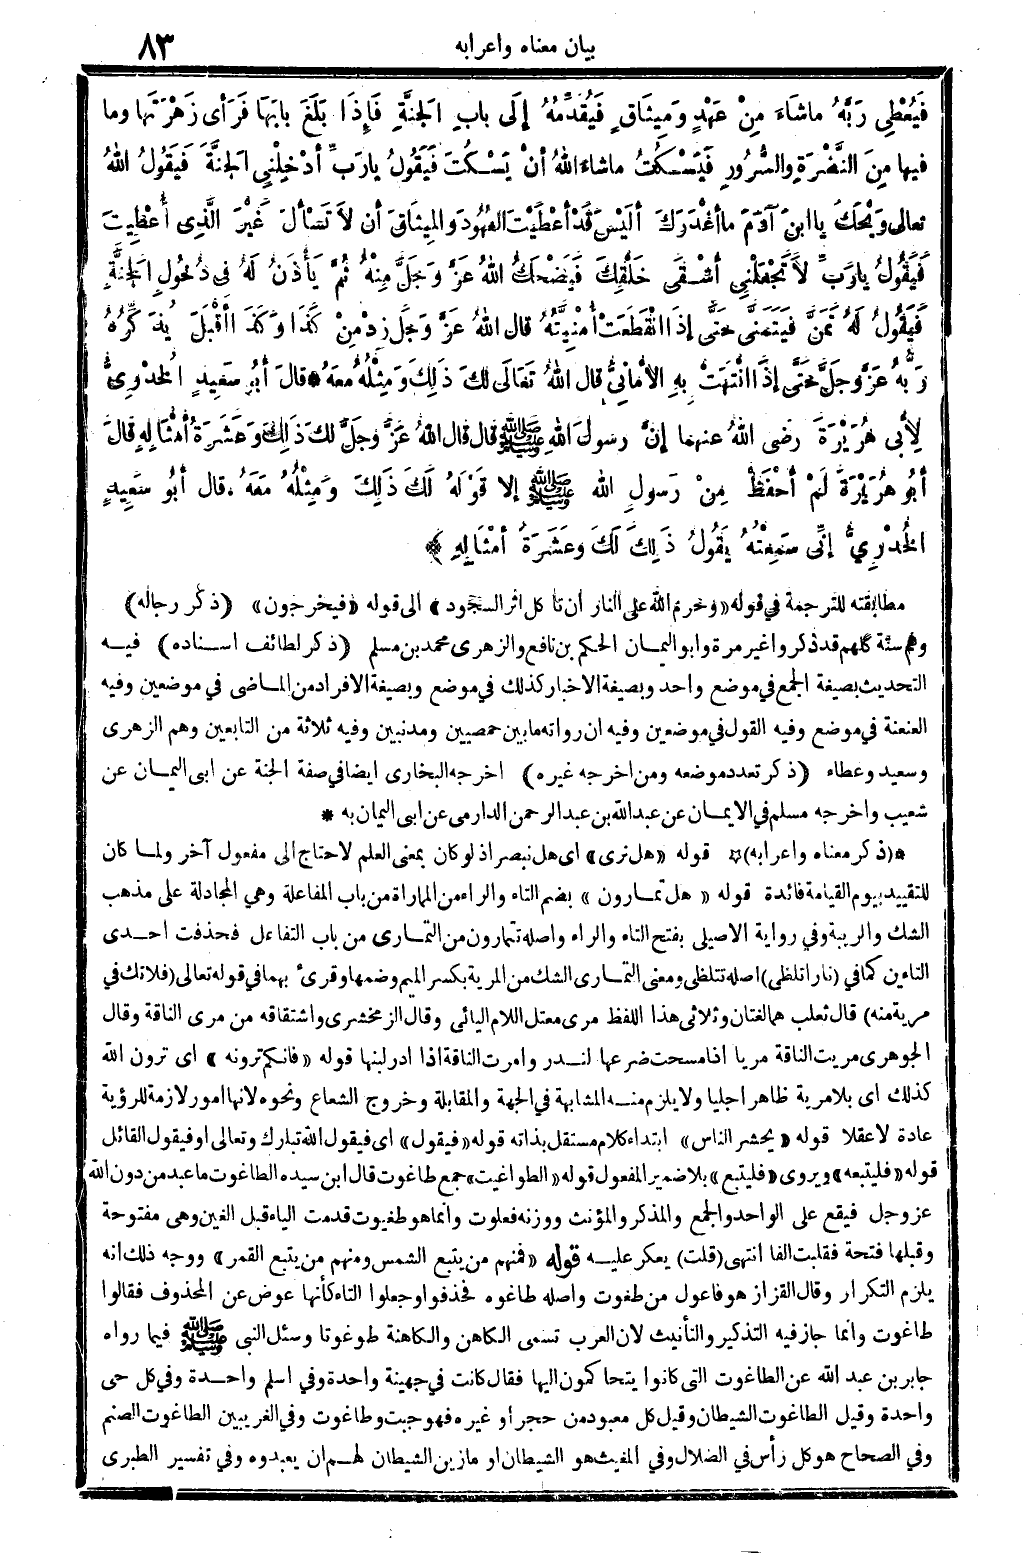 بيان معناه واعرابه ٨٣
فَيُعْطِي رَبَّهُ ماشَاءَ مِنْ عَهْدٍ وَمِيثَاقٍ فَيُقَدِّمُهُ إلَى بابِ الجَنَّةِ فَإِذَا بَلَغَ بابَهَا فَرَأى زَهْرَتَها وما
فيها مِنَ النَّضْرَةِ والسُّرُورِ فَيَسْكُتُ ماشاءَ اللهُ أنْ يَسْكُتَ فَيَقُولُ يارَبِّ أدْخِلْنِي الجَنَّةَ فَيَقُولُ اللهُ
تعالى وَيْحَكَ ياابنَ آدَمَ ماأغْدَرَكَ ألَيْسَ قَدْ أعْطَيْتَ العُهُودَ والمِيثاقَ أن لاَ تَسْألَ غَيْرَ الَّذِى أُعْطِيتَ
فَيَقُولُ يارَبِّ لاَ تَجْعَلْنِي أشْقَى خَلْقِكَ فَيَضْحَكُ اللهُ عَزَّ وَجَلَّ مِنْهُ ثُمَّ يَأْذَنُ لَهُ فى دُخُولِ الجَنَّةِ
فَيَقُولُ لَهُ تَمَنَّ فَيَتَمَنَّى حَتَّى إذَا انْقَطَعَتْ أُمْنِيَّتُهُ قال اللهُ عَزَّ وَجَلَّ زِدْ مِنْ كَذَا وَكَذَا أقْبَلَ يُذَكِّرُهُ
رَبُّهُ عَزَّ وجَلَّ حَتَّى إذَا انْتَهَتْ بِهِ الأمانِيُّ قال اللهُ تَعَالَى لكَ ذَلِكَ وَمِثْلُهُ معَهُ * قالَ أبُو سَعِيدٍ الخُدْرِيُّ
لِأَبِى هُرَيْرَةَ رضى اللهُ عنهما إنَّ رسولَ اللهِ ﷺ قال قال اللهُ عَزَّ وجَلَّ لكَ ذَلِكَ وَعَشَرَةُ أمْثَالِهِ قالَ
أبُو هُرَيْرَةَ لَمْ أحْفَظْ مِنْ رَسولِ اللهِ ﷺ إلا قَوْلَهُ لَكَ ذَلِكَ وَمِثْلُهُ مَعَهُ ، قال أبُو سَعِيدٍ
الخُدْرِيُّ إنِّى سَمِعْتُهُ يَقُولُ ذَلِكَ لَكَ وعَشَرَةُ أمْثَالِهِ ﴾
مطابقته للترجمة في قوله «وحرم الله على النار أن تأكل اثر السجود» الى قوله «فيخرجون» (ذكر رجاله)
وهم ستة كلهم قد ذكروا غير مرة وابو اليمان الحكم بن نافع والزهرى محمد بن مسلم (ذكر لطائف اسناده) فيه
التحديث بصيغة الجمع في موضع واحد وبصيغة الاخبار كذلك في موضع وبصيغة الافراد من الماضى في موضعين وفيه
العنعنة في موضع وفيه القول في موضعين وفيه ان رواته مابين حمصيين ومدنيين وفيه ثلاثة من التابعين وهم الزهرى
وسعيد وعطاء (ذكر تعدد موضعه ومن اخرجه غيره) اخرجه البخارى ايضا في صفة الجنة عن ابى اليمان عن
شعيب واخرجه مسلم في الايمان عن عبد الله بن عبد الرحمن الدارمى عن ابى اليمان به *
*(ذكر معناه واعرابه)* قوله «هل نرى» اى هل نبصر اذ لو كان بمعنى العلم لاحتاج الى مفعول آخر ولما كان
للتقييد بيوم القيامة فائدة قوله « هل تمارون » بضم التاء والراء من المماراة من باب المفاعلة وهي المجادلة على مذهب
الشك والريبة وفي رواية الاصيلى بفتح التاء والراء واصله تتمارون من التمارى من باب التفاعل فحذفت احدى
التاءين كما في (نارا تلظى) اصله تتلظى ومعنى التمارى الشك من المرية بكسر الميم وضمها وقرئ بهما في قوله تعالى (فلا تك في
مرية منه) قال ثعلب هما لغتان وثلاثى هذا اللفظ مرى معتل اللام اليائى وقال الزمخشرى واشتقاقه من مرى الناقة وقال
الجوهرى مريت الناقة مريا اذا مسحت ضرعها لتدر وامرت الناقة اذا ادر لبنها قوله «فانكم ترونه» اى ترون الله
كذلك اى بلا مرية ظاهرا جليا ولا يلزم منه المشابهة في الجهة والمقابلة وخروج الشعاع ونحوه لانها امور لازمة للرؤية
عادة لا عقلا قوله «يحشر الناس» ابتداء كلام مستقل بذاته قوله «فيقول» اى فيقول الله تبارك وتعالى او فيقول القائل
قوله «فليتبعه» ويروى «فليتبع» بلا ضمير المفعول قوله «الطواغيت» جمع طاغوت قال ابن سيده الطاغوت ما عبد من دون الله
عز وجل فيقع على الواحد والجمع والمذكر والمؤنث ووزنه فعلوت وانما هو طغيوت قدمت الياء قبل الغين وهى مفتوحة
وقبلها فتحة فقلبت الفا انتهى (قلت) يعكر عليه قوله «فمنهم من يتبع الشمس ومنهم من يتبع القمر» ووجه ذلك انه
يلزم التكرار وقال القزاز هو فاعول من طغوت واصله طاغوه فحذفوا وجعلوا التاء كأنها عوض عن المحذوف فقالوا
طاغوت وانما جاز فيه التذكير والتأنيث لان العرب تسمى الكاهن والكاهنة طوغوتا وسئل النبى ﷺ فيما رواه
جابر بن عبد الله عن الطاغوت التى كانوا يتحاكمون اليها فقال كانت في جهينة واحدة وفي اسلم واحدة وفي كل حى
واحدة وقيل الطاغوت الشيطان وقيل كل معبود من حجر أو غيره فهو جبت وطاغوت وفي الغريبين الطاغوت الصنم
وفي الصحاح هو كل رأس في الضلال وفي المغيث هو الشيطان او ما زين الشيطان لهم ان يعبدوه وفي تفسير الطبرى